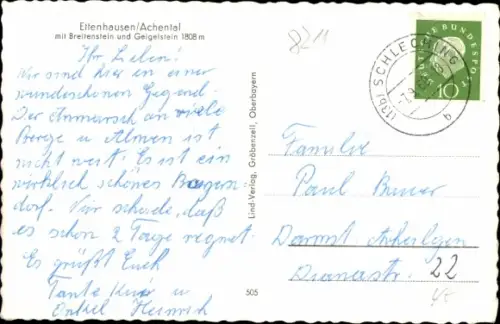 Ettenhausen/Achental
mit Breitenstein und Geigelstein 1808 m
821
Ihr Lieben!
Wir sind hier in einer
wunderschönen Gegend.
Der Anmarsch an viele
Berge und Almen ist
nicht weit. Es ist ein
wirklich schönes Bayern-
dorf. Nur schade, daß
es schon 2 Tage regnet.
Es grüßt Euch
Tante u
Onkel Heinrich
Lind-Verlag, Gröbenzell, Oberbayern
505
(13b) SCHLECHING
b
DEUTSCHE BUNDESPOST
10
Familie
Paul
Darmst. Arheilgen
Dianastr. 22